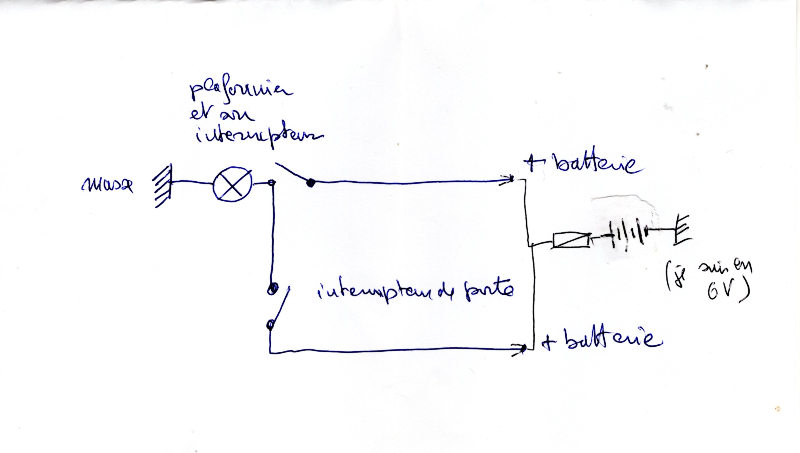 plafonnier
et son
interrupteur
masse
+ batterie
interrupteur de porte
(je suis en
6V)
+ batterie